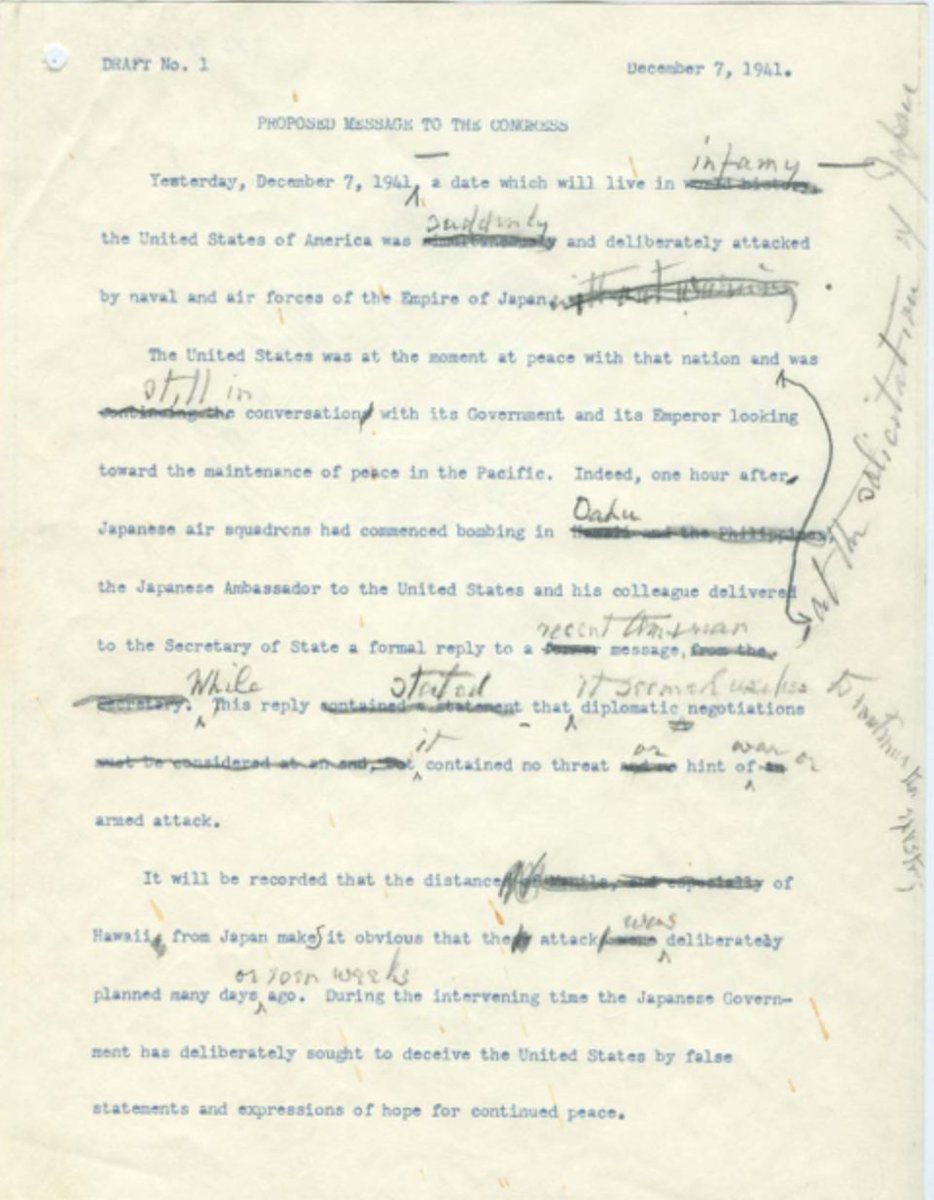 DRAFT No. 1
December 7, 1941.
PROPOSED MESSAGE TO THE CONGRESS
infamy
Yesterday, December 7, 1941, a date which will live in world history,
suddenly
the United States of America was simultaneously and deliberately attacked
by naval and air forces of the Empire of Japan without warning
The United States was at the moment at peace with that nation and was
still in
continuing the conversations with its Government and its Emperor looking
toward the maintenance of peace in the Pacific. Indeed, one hour after,
Oahu
Japanese air squadrons had commenced bombing in Hawaii and the Philippines,
the Japanese Ambassador to the United States and his colleague delivered
recent American
to the Secretary of State a formal reply to a former message, from the
While stated it seemed useless to continue the
Secretary. This reply contained a statement that diplomatic negotiations
it or war or
must be considered at an end, but contained no threat and no hint of an
armed attack.
It will be recorded that the distances of Manila, and especially of
was
Hawaii, from Japan makes it obvious that the attack were deliberately
or even weeks
planned many days ago. During the intervening time the Japanese Govern-
ment has deliberately sought to deceive the United States by false
statements and expressions of hope for continued peace.
at the solicitation of Japan